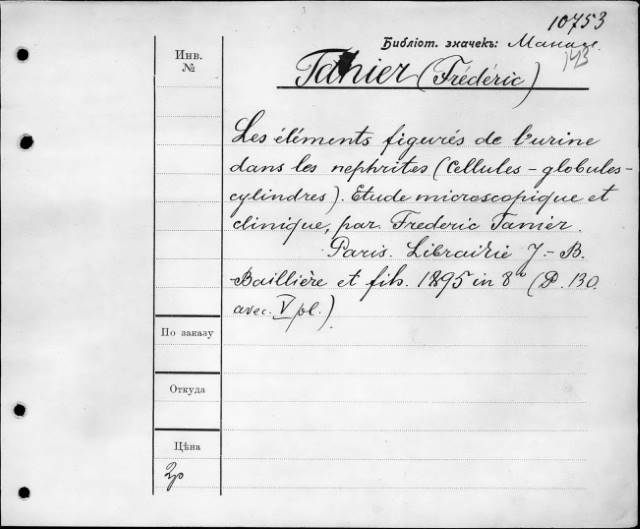 10753
Библіот. значекъ:
143
Инв.
№
Tanier (Frédéric)
Les éléments figurés de l'urine
dans les nephrites (Cellules - globules -
cylindres). Etude microscopique et
clinique, par Frederic Tanier.
Paris. Librairie J.-B.
Baillière et fils. 1895 in 8° (P. 130
avec V pl.)
По заказу
Откуда
Цѣна
2р